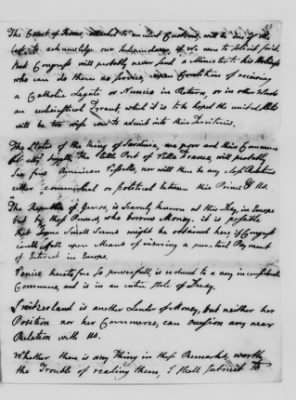 The Court of Rome, attached to ancient Customs, will be
last to acknowledge our Independence, if we were to solicit for it
But Congress will probably never send a Minister to his Holiness
who can do them no service, upon Condition of receiving
a Catholic Legate or Nuncio in Return, or in other Words
an ecclesiastical Tyrant, which it is to be hoped the united States
will be too wise ever to admit into their Territories.
The States of the King of Sardinia, are poor and their Commerce
is very small. The little Port of Villa Franca, will probably
see few American Vessells, nor will there be any Relations
either commercial or political between this Prince & Us.
The Republic of Genoa, is scarcely known at this Day, in Europe
but by those Powers, who borrow Money. it is possible
that some small Sums might be obtained here, if Congress
could fall upon Means of insuring a punctual Payment
of Interest in Europe.
Venice, heretofore so powerfull, is reduced to a very inconsiderable
Commerce, and is in an entire State of Decay.
Switzerland is another Lender of Money, but neither her
Position nor her Commerce, can occasion any near
Relation with Us.
Whether there is any Thing in these Remarks, worth
the Trouble of reading them, I shall submit to